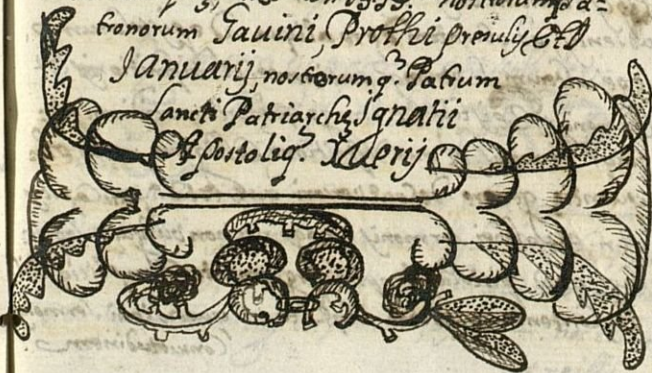 nostrorum pa-
tronorum Gauini, Prothi presulis Et D
Ianuarij, nostrorumq3 Patrum
Sancti Patriarchę Ignatii
Apostoliq3 Xauerij